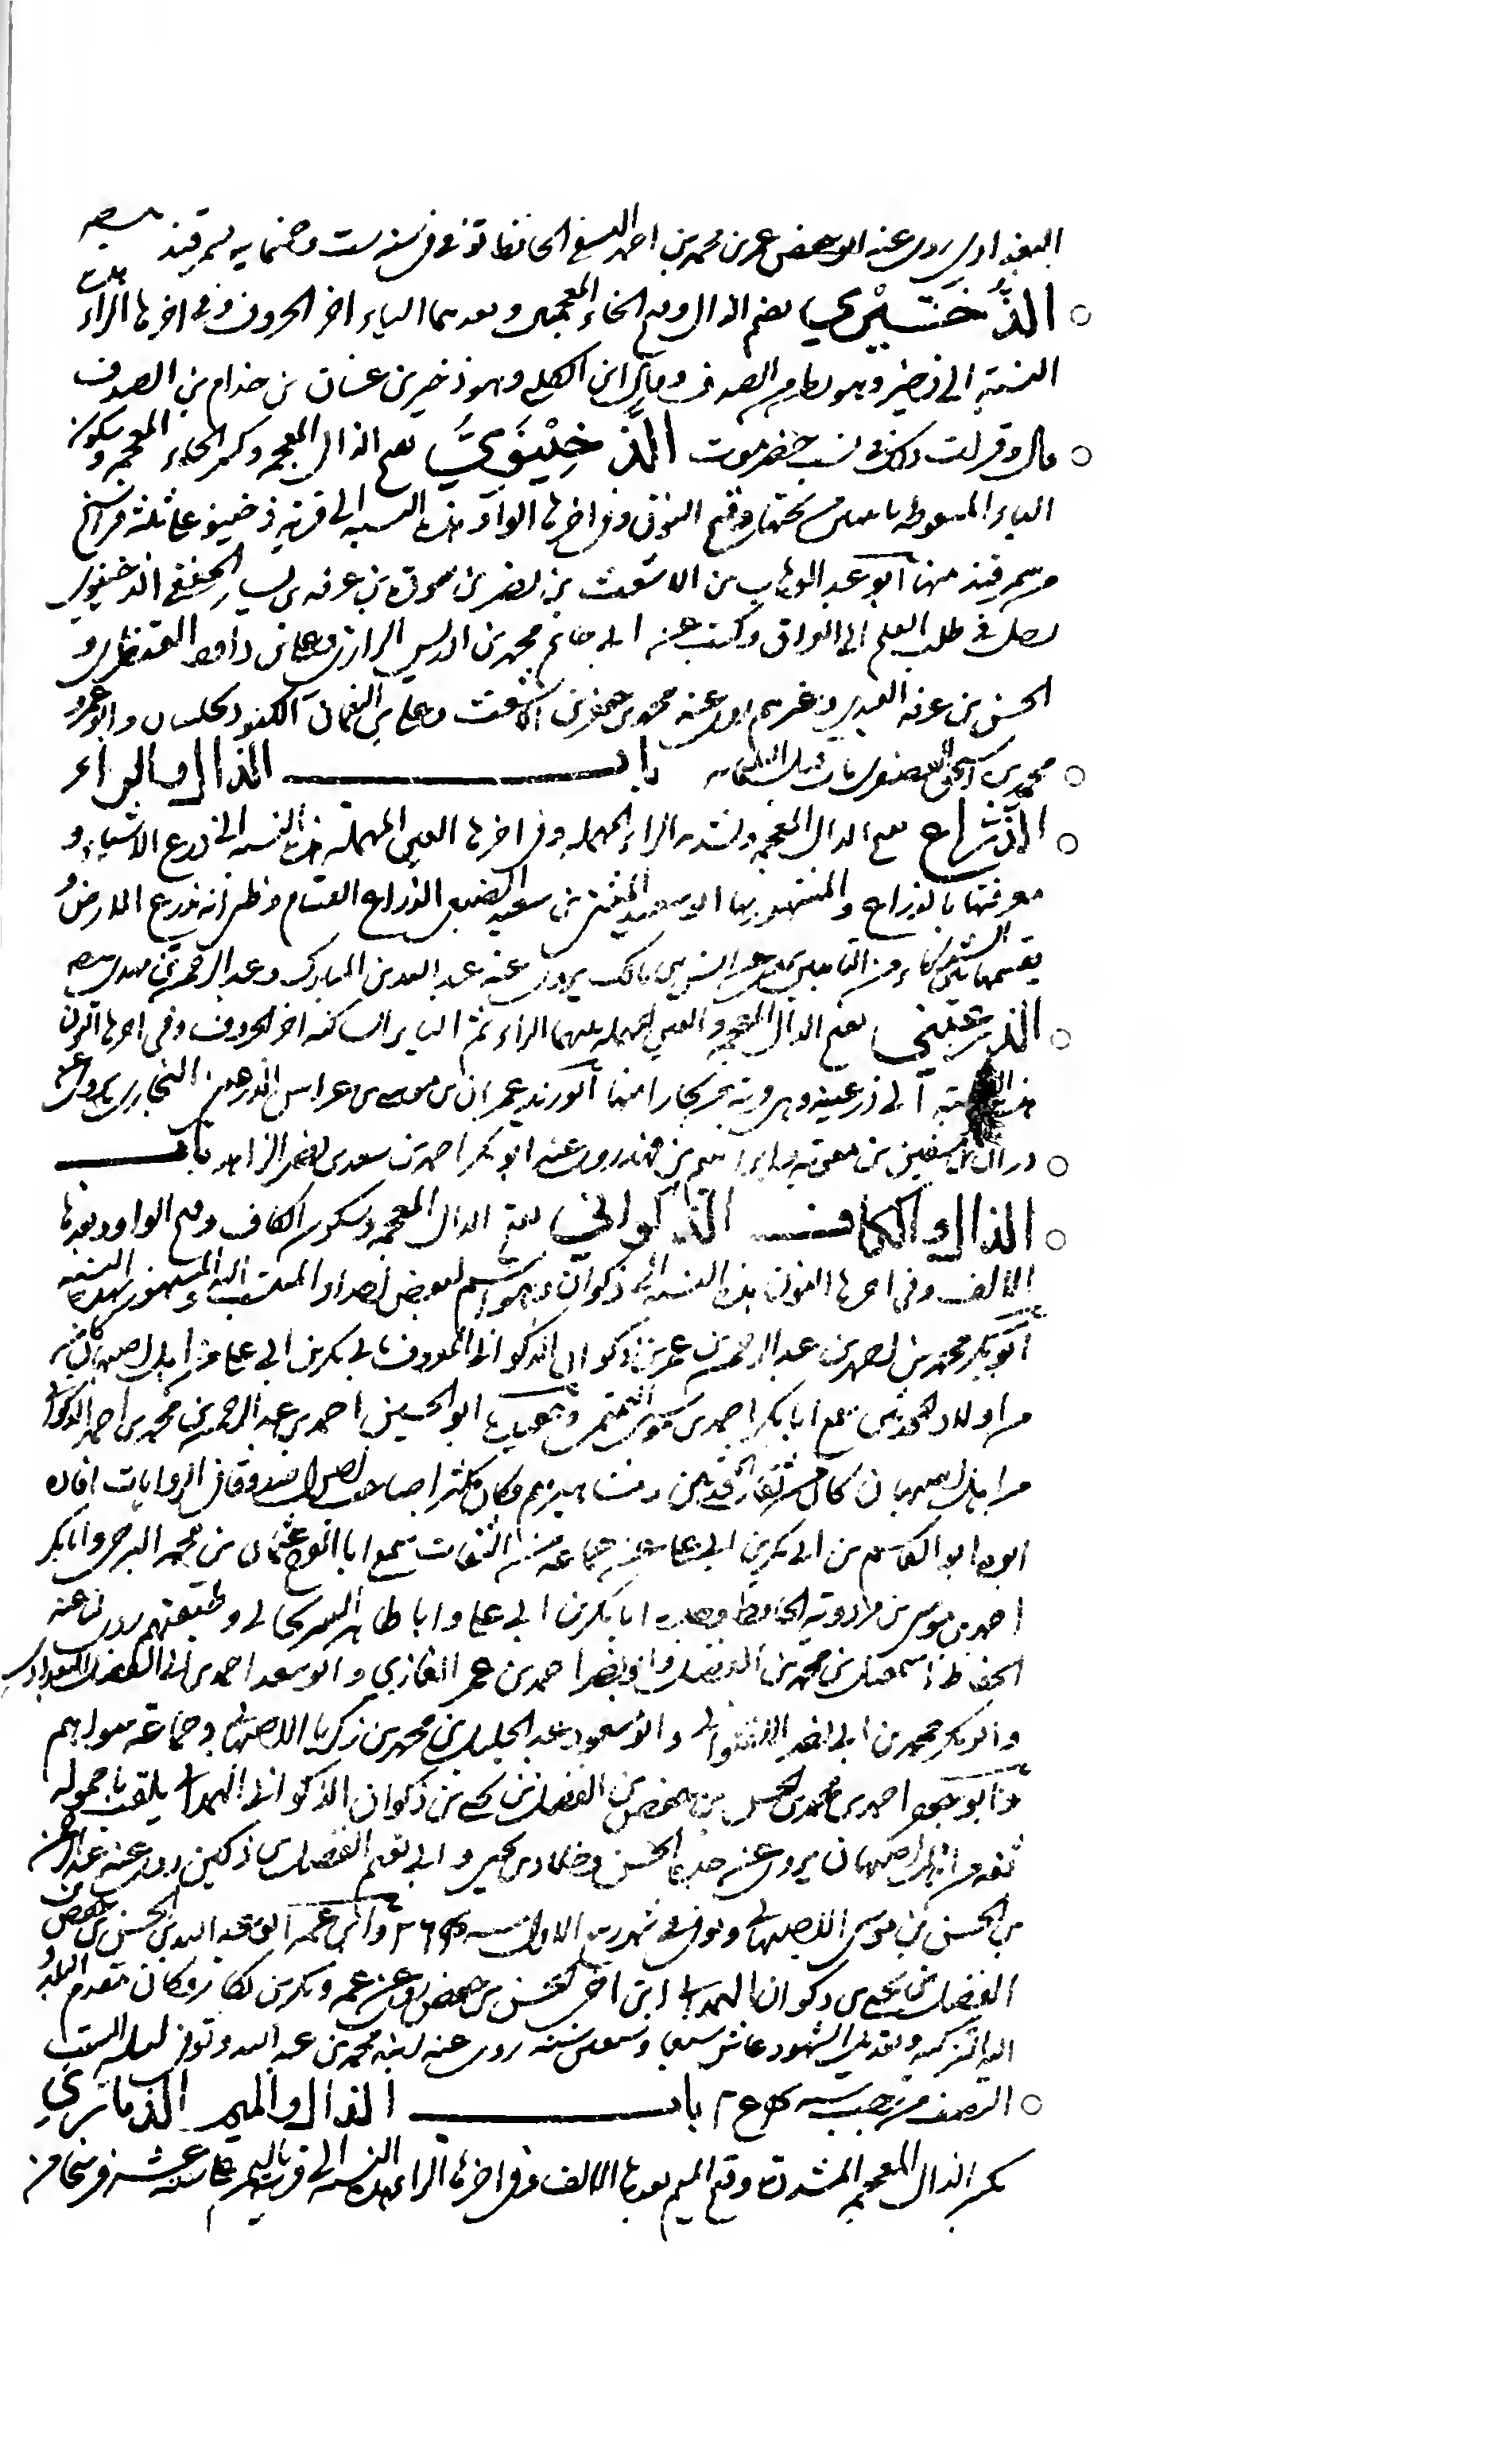 البغدادي روى عنه ابو حفص عمر بن محمد بن احمد النسفي الحافظ توفي في سنة ست وخمسمايه بسمرقند
الذُّخَيْرِي بضم الذال وفتح الخاء المعجمتين وبعدهما الياء اخر الحروف وفي اخرها الراء هذه
النسبة الى ذخير وهو بطن من الصدف وقال ابن الكلبي وهو ذخير بن غسان بن جذام بن الصدف
قال وقد كتب ذلك في نسب حضرموت الذَّخِيْنَوِيّ بفتح الذال المعجمه وكسر الخاء المعجمه وسكون
الياء المنقوطه باثنتين من تحتها وفتح النون وفي اخرها الواو هذه النسبه الى قرية ذخينو على ثلثة فراسخ
من سمرقند منها ابو عبد الوهاب بن الاشعث بن نصر بن سورة بن عرفه بن يسار الحنفي الذخينوي
رحل في طلب العلم الى العراق وكتب عن ابي حاتم محمد بن ادريس الرازي وعلي بن داود القنطري و
الحسن بن عرفه العبدي وغيرهم روى عنه محمد بن جعفر بن الاشعث وعلي بن النعمان الكبوذنجكثيان وابو عمرو
محمد بن اسحق العصفري مات قبل الثلثمايه باب الذال والراء
الذَّرَّاع بفتح الذال المعجمه وتشديد الراء المهمله وفي اخرها العين المهملة هذه النسبه الى ذرع الاشياء و
معرفتها بالذراع والمشهور بها ابو سعيد المثنى بن سعيد الضبعي الذراع القسام وظني انه يذرع الارض و
يقسمها بين الشركاء من التابعين يروي عن انس بن مالك يروي عنه عبد الله بن المبارك وعبد الرحمن بن مهدي
الذرعيني بفتح الذال المعجمه والعين المهمله بينهما الراء ثم الياء الساكنه اخر الحروف وفي اخرها النون
هذه النسبة الى ذرعينه وهي قرية من بخارا منها ابو زيد عمران بن موسى بن غرامش الذرعيني البخاري يروي عن
ابراهيم بن فهد روى عنه ابو بكر احمد بن سعد بن نصر الزاهد باب
الذال والكاف الذَّكواني بفتح الذال المعجمه وسكون الكاف وفتح الواو وبعدها
الالف وفي اخرها النون هذه النسبه الى ذكوان وهو اسم لبعض اجداد المنتسب اليه والمشهور بهذه النسبه
ابو بكر محمد بن احمد بن عبد الرحمن بن عمر بن ذكوان الذكواني المعروف بابي بكر بن ابي علي من اهل اصبهان كان
من اولاد المحدثين سمع ابا بكر احمد بن موسى التيمي وحفيده ابو الحسين احمد بن عبد الرحمن بن محمد بن احمد الذكواني
من اهل اصبهان كان من ثقات المحدثين ومشاهيرهم وكان مكثرا صاحب اصول صدوقا في الروايات افاده
ابوه ابو القاسم بن ابي بكر بن ابي علي عن جماعه من الثقات سمع ابا الفرج عثمان بن محمد البرجي وابا بكر
احمد بن موسى بن مردويه الحافظ وجده ابا بكر بن ابي علي وابا طاهر السرنجاني وطبقتهم روى لنا عنه
الحفاظ اسمعيل بن محمد بن الفضل وابو نصر احمد بن عمر الغازي وابو سعد احمد بن ابي الفضل البغدادي
وابو بكر محمد بن ابي نصر اللفتواني وابو مسعود عبد الجليل بن محمد بن زكريا الاصبهاني وجماعة سواهم
وابو جعفر احمد بن محمد بن الحسين بن حفص بن الفضل بن يحيى بن ذكوان الذكواني الهمداني يلقب باحموله
ثقه من اهل اصبهان يروي عن جده الحسين وخلاد بن يحيى وابي نعيم الفضل بن دكين روى عنه عبد الرحمن
بن الحسن بن موسى الاصبهاني وتوفي في شهر ربيع الاول سنه وابن عمه ابو عبد الله بن الحسن بن حفص بن
الفضل بن يحيى بن ذكوان الهمداني ابن اخي الحسين بن حفص روى عن عمه وبكر بن بكار وكان مقدم البلد و
اليه التزكيه وتعديل الشهود عاش سبعا وسبعين سنه روى عنه ابنه محمد بن عبد الله وتوفي ليلة السبت
النصف من رجب سنه باب الذال والميم الذماري
بكسر الذال المعجمه المشددة وفتح الميم بعدها الالف وفي اخرها الراء هذه النسبه الى قرية باليمن على سته عشر فرسخا من